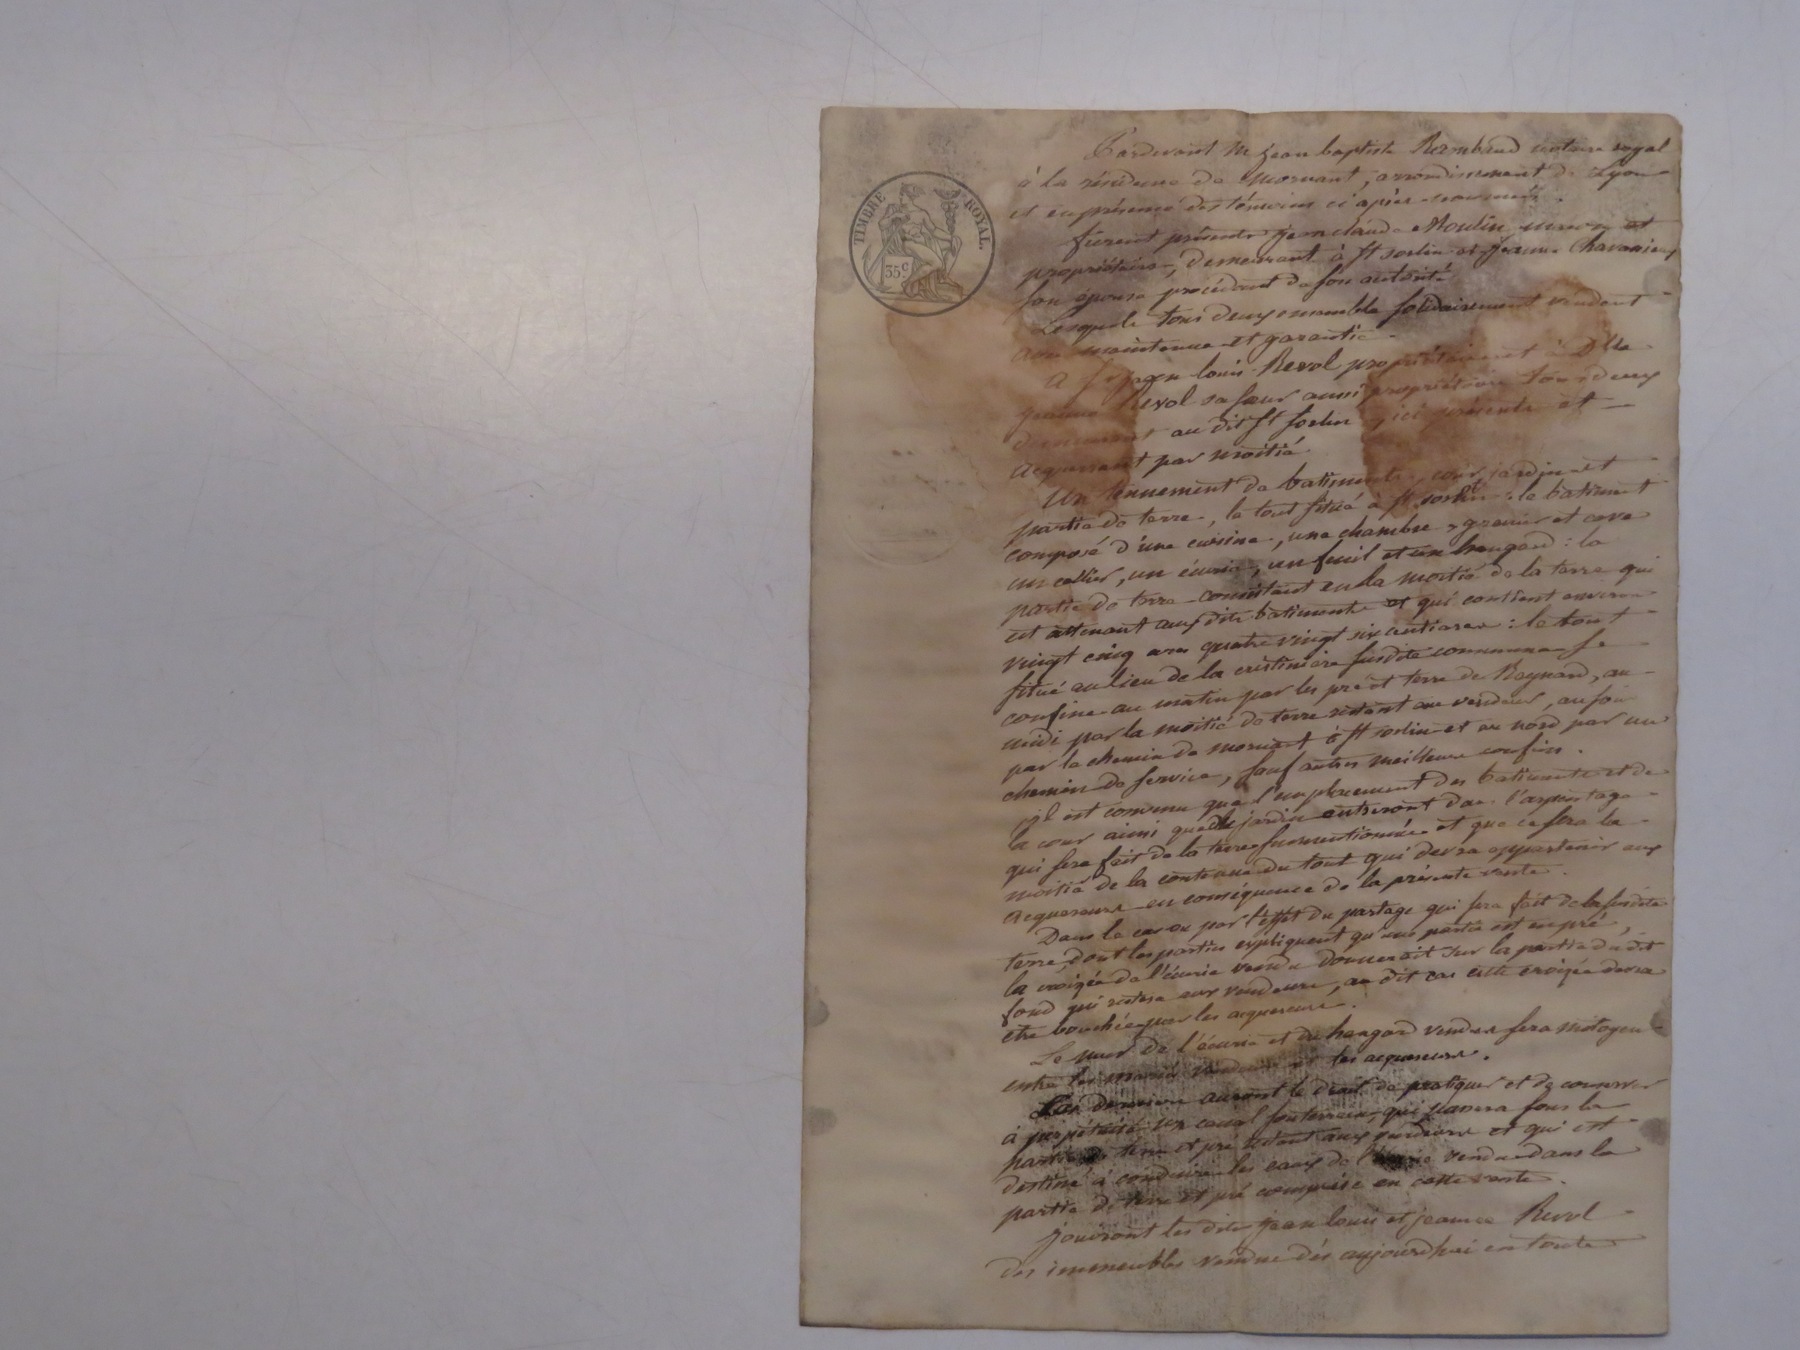 TIMBRE ROYAL.
35c
Pardevant Me jean baptiste Rambaud notaire royal
à la résidence de Mornant, arrondissement de Lyon
et en présence des témoins ci après nommés.
furent présents jean claude Moulin et
propriétaire, demeurant à St sorlin et jeanne Chavanieux
son épouse procédant de son autorité
Lesquels tous deux ensemble solidairement vendent
avec maintenue et garantie
A Sr jean louis Revol propriétaire et à Dlle
jeanne Revol sa sœur aussi propriétaire tous deux
demeurant au dit St sorlin, ici présents et
acquérant par moitié
Un tennement de batiments, cour, jardin et
partie de terre, le tout situé à St sorlin : le batiment
composé d'une cuisine, une chambre, grenier et cave
un cellier, un écurie, un fenil et un hangard : la
partie de terre consistant en la moitié de la terre qui
est attenant aux dits batiments et qui contient environ
vingt cinq ares quatre vingt six centiares : le tout
situé au lieu de la cristinière susdite commune se
confine au matin par les pré et terre de Raynard, au
midi par la moitié de terre restant au vendeur, au soir
par le chemin de mornant à St sorlin et au nord par un
chemin de service, sauf autres meilleurs confins.
il est convenu que l'emplacement des batiments et de
la cour ainsi que le jardin entreront dans l'arpentage
qui sera fait de la terre susmentionnée et que ce sera la
moitié de la contenue du tout qui devra appartenir aux
acquereurs en conséquence de la présente vente.
Dans le cas ou par l'effet du partage qui sera fait de la susdite
terre, dont les parties expliquent qu'une partie est en pré,
la croizée de l'écurie vendue donnerait sur la partie du dit
fond qui restera aux vendeurs, au dit cas cette croizée devra
etre bouchée par les acquereurs.
Le mur de l'écurie et du hangard vendus sera mitoyen
entre les mariés vendeurs et les acquereurs.
Ces derniers auront le droit de pratiquer et de conserver
à perpétuité un canal souterrain, qui passera sous la
partie de terre et pré restant aux vendeurs et qui est
destiné à conduire les eaux de l'écurie vendue dans la
partie de terre et pré comprise en cette vente.
jouiront les dits jean louis et jeanne Revol
des immeubles vendus dès aujourdhui en toute